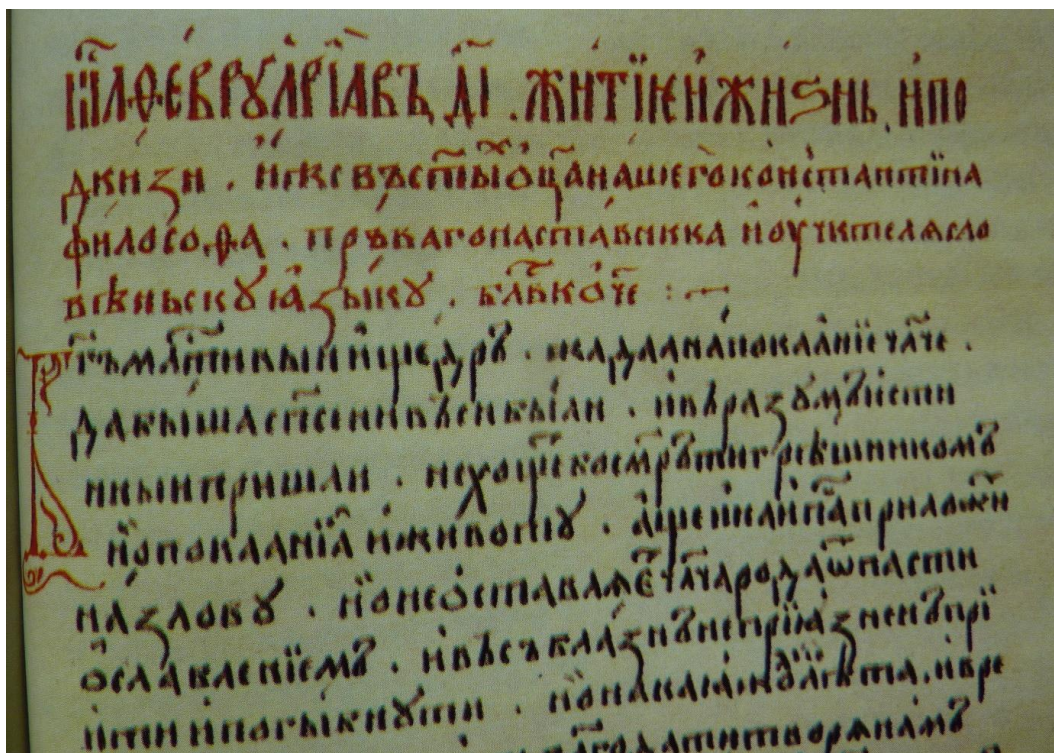 мⷭ҇ца феврꙋарїа въ д҃і . житїе и жизнь . и по
двизи . иже въ ст҃ы́хъ ѻц҃а нашегоконстантїна
философа . пръваго наставника и оучителѧ сло
вѣньскꙋ ꙗзыкꙋ . бл҃ви ѻч҃е :~
Бг҃ъ млⷭ҇тивыи и щедръ . жадаа на покаанїе чл҃че .
да быша сп҃сени въси были . и въ разꙋмъ исти
нныи пришли . не хощет бо съмр҃ти грѣшникомъ
но покаанїа и животꙋ . аще и наипа прилежи
на злобꙋ . но не ѡставлѧет чл҃ча рода ѿпасти
ѡслаблениемъ . и въ съблазнъ неприазненъ прї
ити и погыбнꙋти . но на каꙗждо лѣта . и вре